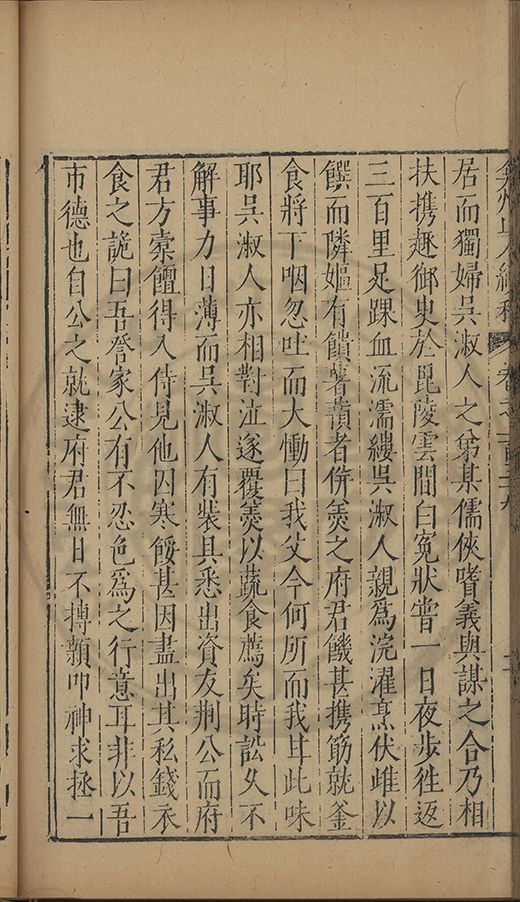 弇州山人續稿 卷之一百二十九
居而獨婦吳淑人之弟某儒俠嗜義與謀之合乃相
扶携趣御史於毘陵雲間白冤狀嘗一日夜步徃返
三百里足踝血流濡縷吳淑人親爲浣濯烹伏雌以
饌而隣嫗有饋薯蕷者併羹之府君饑甚携筋就釜
食將下咽忽吐而大慟曰我父今何所而我甘此味
耶吳淑人亦相對泣遂覆羹以蔬食薦矣時訟久不
解事力日薄而吳淑人有裝具悉出資友荆公而府
君方橐饘得入侍見他囚寒餒甚因盡出其私錢衣
食之詭曰吾營家公有不忍色爲之行意耳非以吾
市德也自公之就逮府君無日不摶顙叩神求拯一